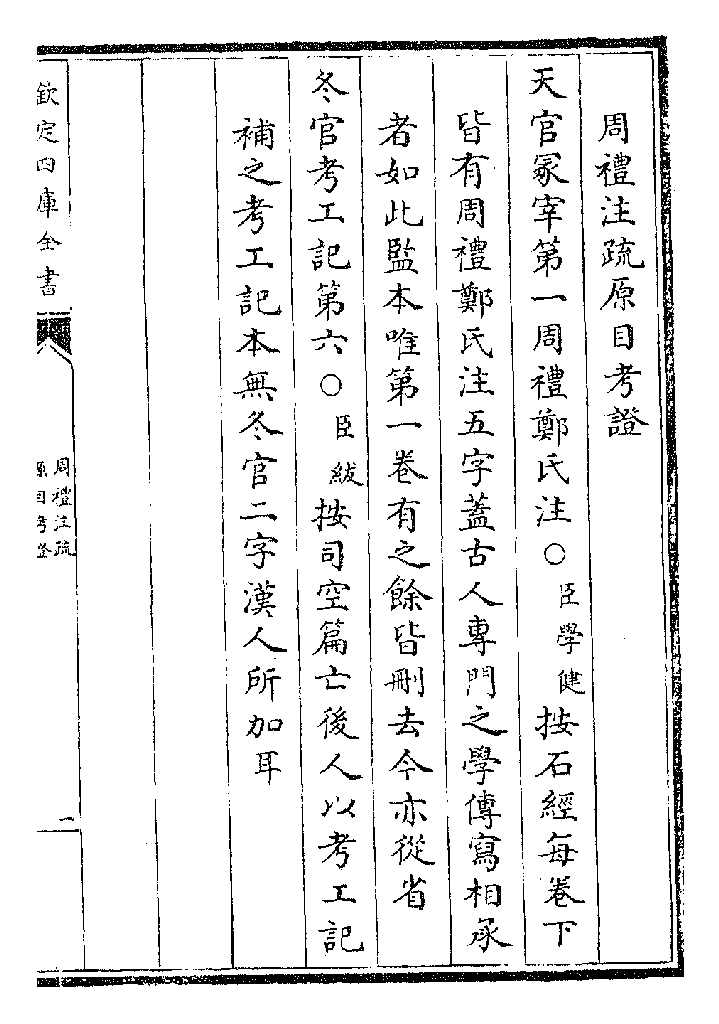 周禮注疏原目考證
天官冢宰第一周禮鄭氏注○臣學健按石經每卷下
皆有周禮鄭氏注五字蓋古人專門之學傳寫相承
者如此監本唯第一卷有之餘皆刪去今亦從省
冬官考工記第六○臣紱按司空篇亡後人以考工記
補之考工記本無冬官二字漢人所加耳
欽定四庫全書
周禮注疏
原目考證
一